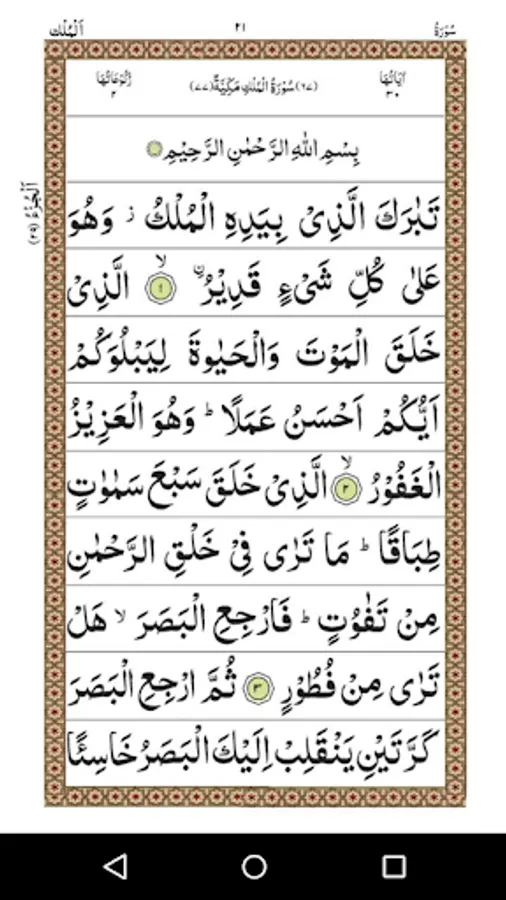 سُوْرَةُ ٢١ اَلْمُلْك
اٰيَاتُهَا ٣٠ (٦٧) سُوْرَةُ الْمُلْكِ مَكِّيَّةٌ (٧٧) رُكُوْعَاتُهَا ٢
اَلْجُزْءُ (٢٩)
بِسْمِ اللهِ الرَّحْمٰنِ الرَّحِيْمِ
تَبٰرَكَ الَّذِىْ بِيَدِهِ الْمُلْكُ ز وَهُوَ
عَلٰى كُلِّ شَىْءٍ قَدِيْرُ ۨ ۙ ١ الَّذِىْ
خَلَقَ الْمَوْتَ وَالْحَيٰوةَ لِيَبْلُوَكُمْ
اَيُّكُمْ اَحْسَنُ عَمَلًا ؕ وَهُوَ الْعَزِيْزُ
الْغَفُوْرُ ۙ ٢ الَّذِىْ خَلَقَ سَبْعَ سَمٰوٰتٍ
طِبَاقًا ؕ مَا تَرٰى فِىْ خَلْقِ الرَّحْمٰنِ
مِنْ تَفٰوُتٍ ؕ فَارْجِعِ الْبَصَرَ ۙ هَلْ
تَرٰى مِنْ فُطُوْرٍ ٣ ثُمَّ ارْجِعِ الْبَصَرَ
كَرَّتَيْنِ يَنْقَلِبْ اِلَيْكَ الْبَصَرُ خَاسِئًا